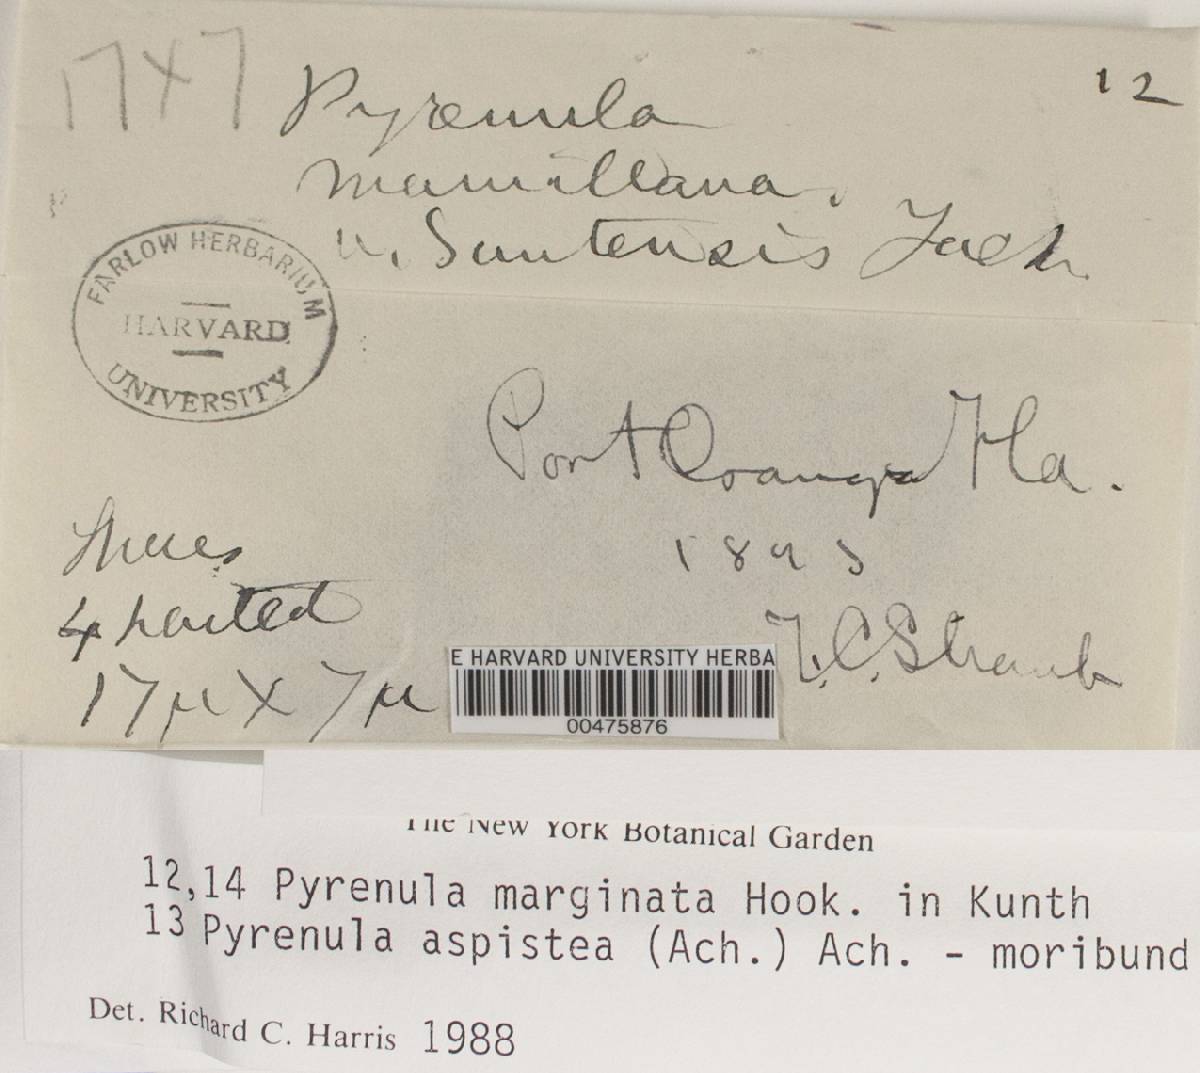 17 x 7
12
Pyrenula
mamillana.
v. Santensis Tuck
FARLOW HERBARIUM
HARVARD
UNIVERSITY
Port Orange Fla.
1893
4 parted
17 µ X 7 µ
E HARVARD UNIVERSITY HERBA
00475876
The New York Botanical Garden
12,14 Pyrenula marginata Hook. in Kunth
13 Pyrenula aspistea (Ach.) Ach. - moribund
Det. Richard C. Harris 1988